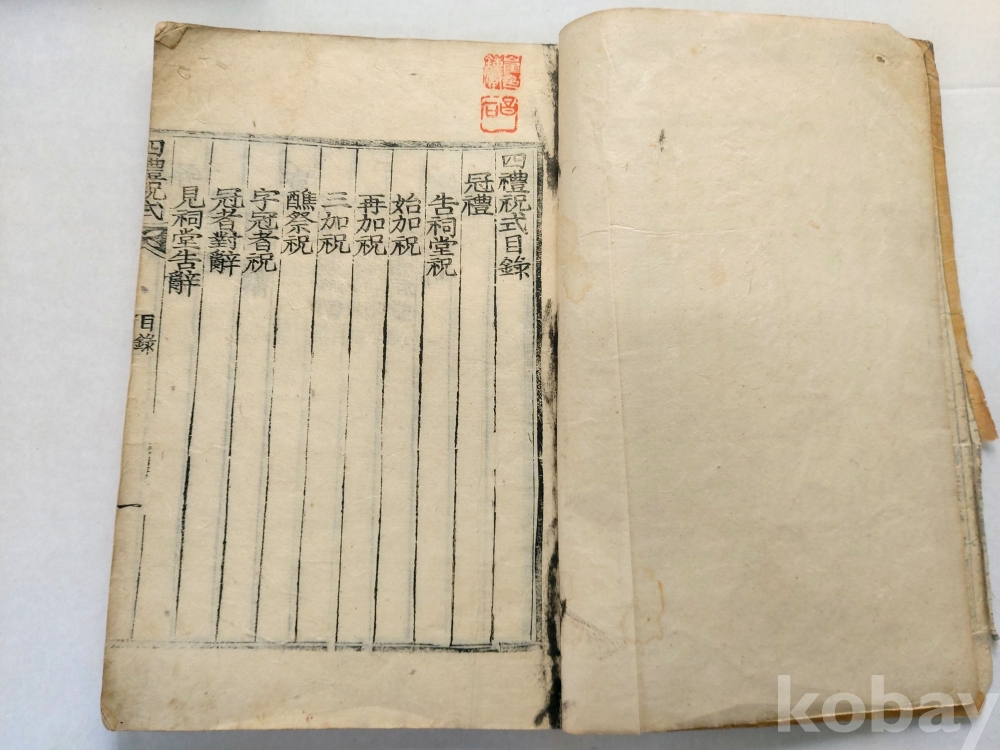 四禮祝式目錄
冠禮
告祠堂祝
始加祝
再加祝
三加祝
醮祭祝
字冠者祝
冠者對辭
見祠堂告辭
四禮祝式
目錄
一
kobay